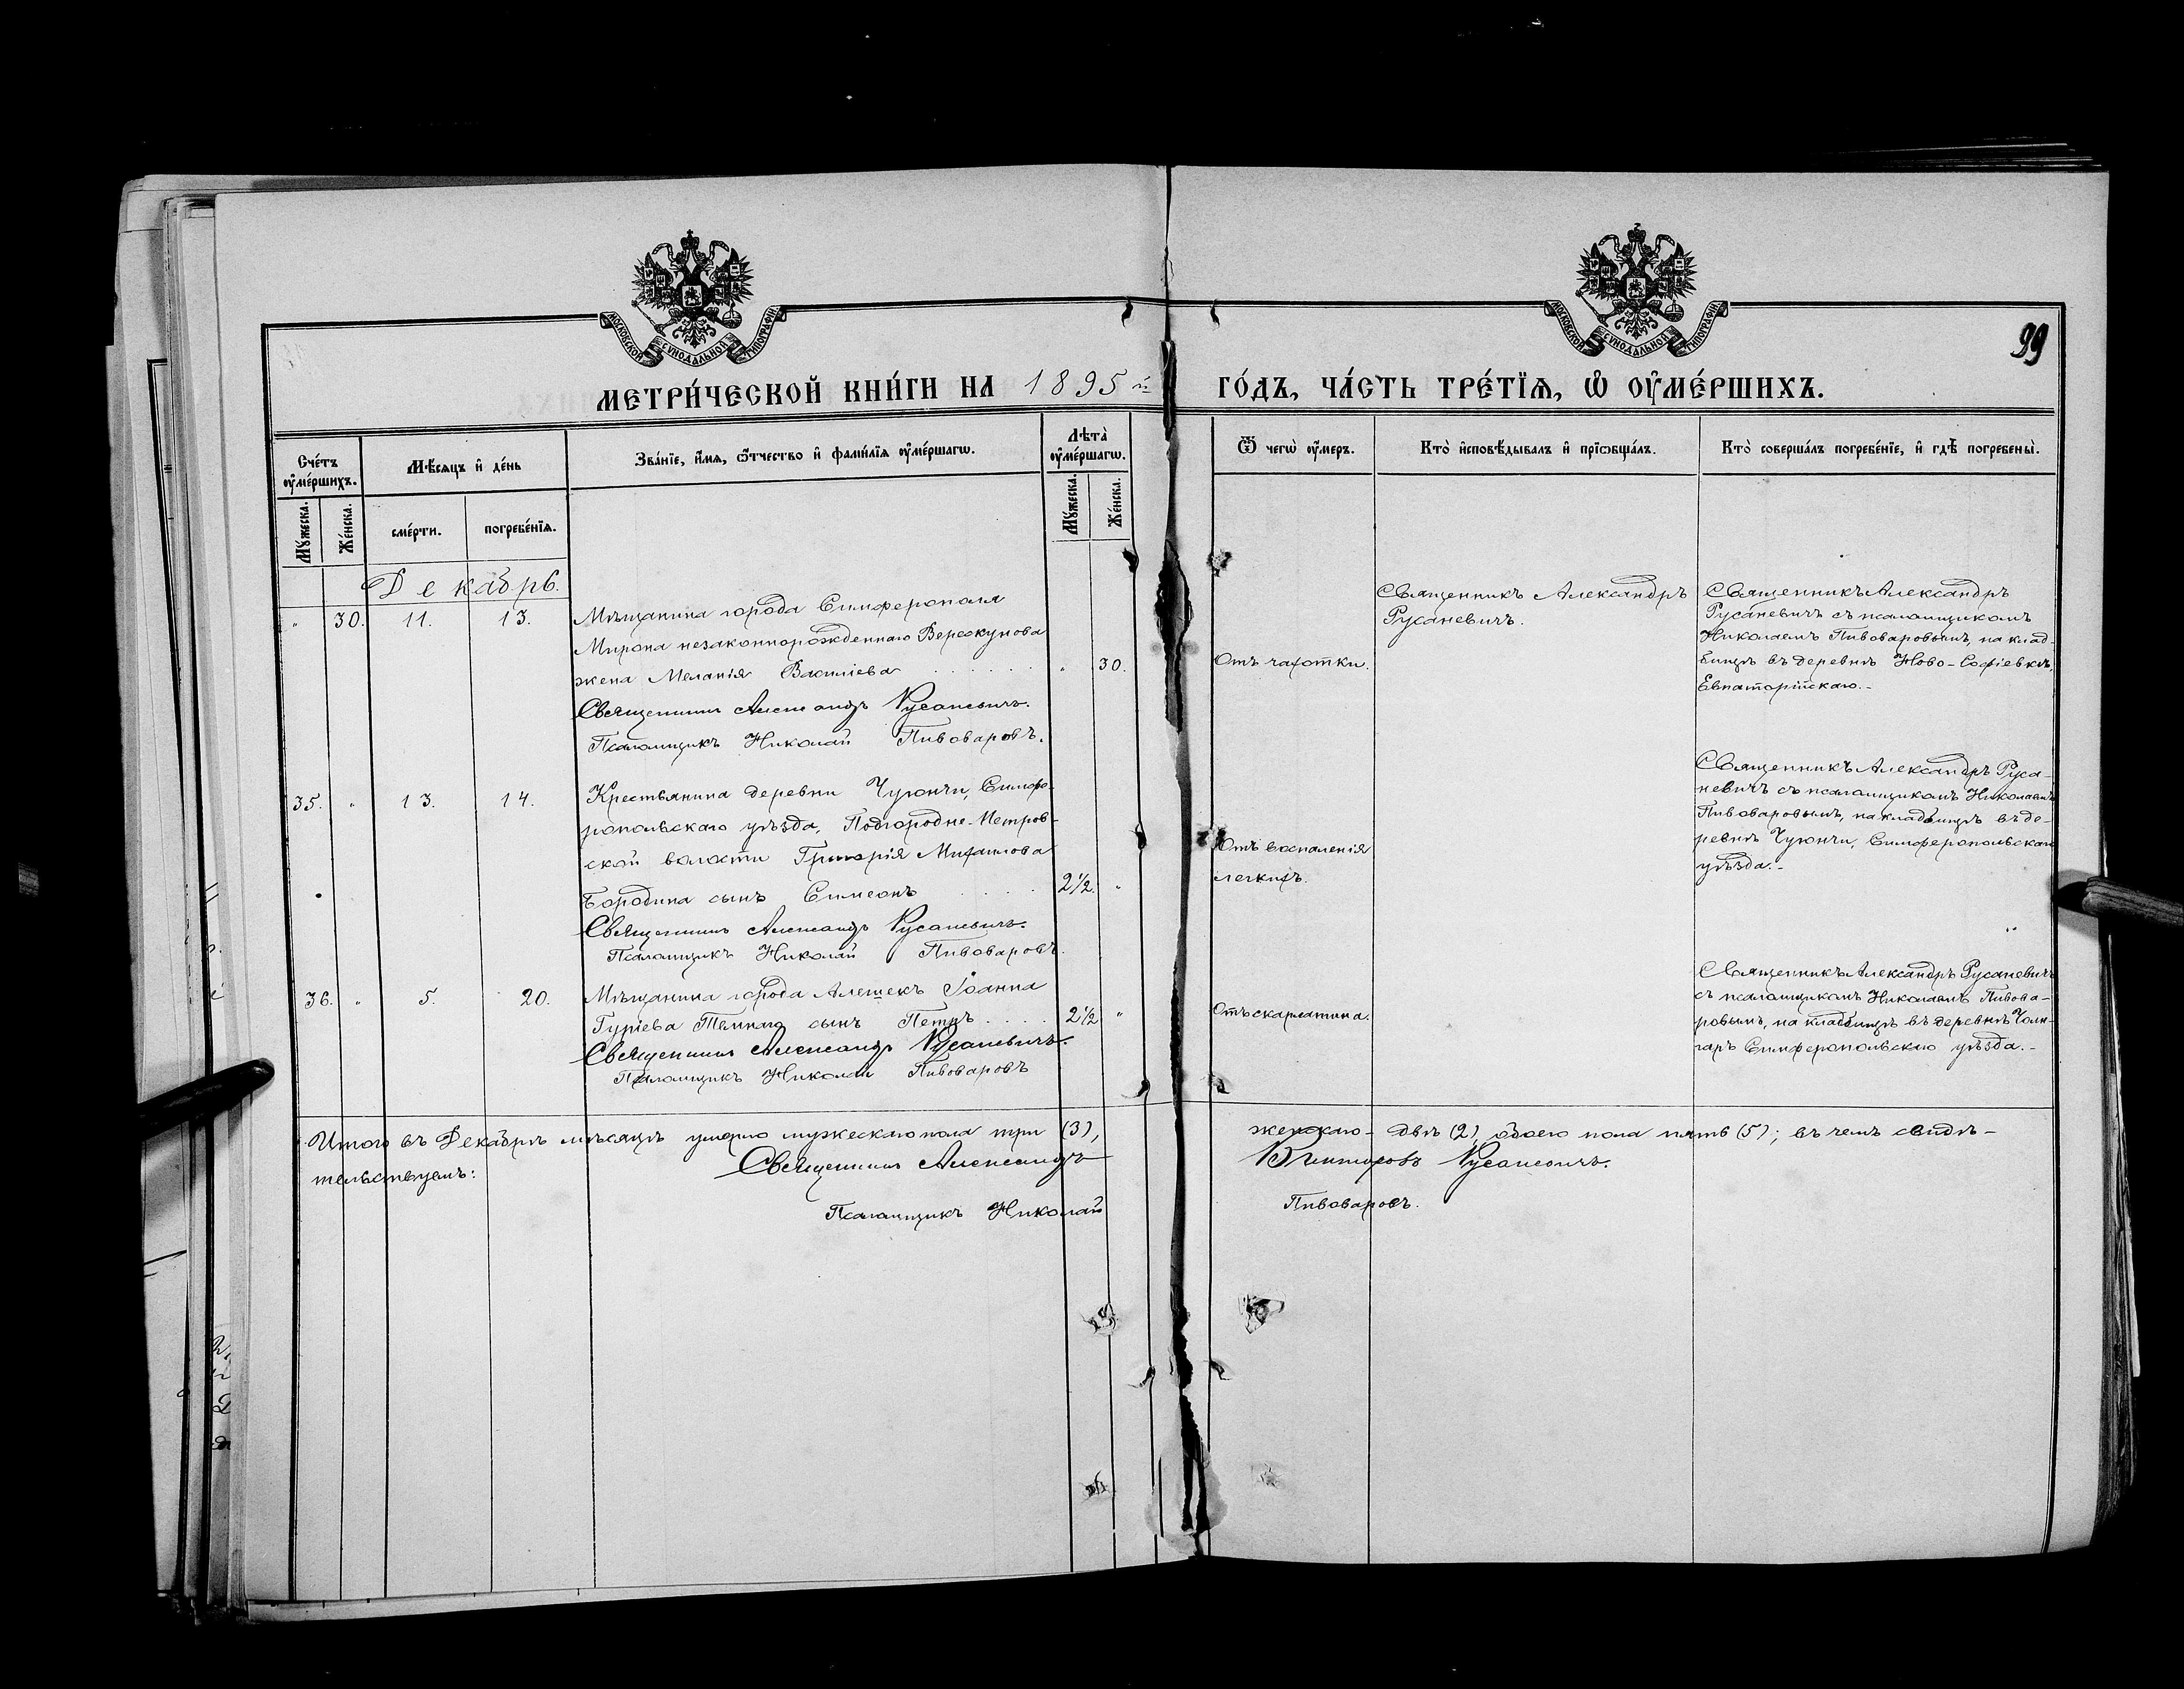 МОСКОВСКОЙ СѴНОДАЛЬНОЙ ТИПОГРАФІИ
МОСКОВСКОЙ СѴНОДАЛЬНОЙ ТИПОГРАФІИ
99
МЕТРИ́ЧЕСКОЙ КНИ́ГИ НА 1895 й
ГО́ДЪ, ЧА́СТЬ ТРЕ́ТЇѦ, Ѡ҆ ОУ҆МЕ́РШИХЪ.
Сче́тъ оу҆ме́ршихъ.
Мѣ́сѧцъ и҆ де́нь
Зва́нїе, и҆́мѧ, ѻ҆́тчество и҆ фами́лїѧ оу҆ме́ршагѡ.
Лѣта̀ оу҆ме́ршагѡ.
Ѿ чегѡ̀ оу҆́меръ.
Кто̀ и҆сповѣ́дывалъ и҆ прїѡбща́лъ.
Кто̀ соверша́лъ погребе́нїе, и҆ гдѣ̀ погребены̀.
Мꙋ́жеска.
Же́нска.
сме́рти.
погребе́нїѧ.
Мꙋ́жеска.
Же́нска.
Декабрь.
" 30. 11. 13.
Мѣщанина города Симферополя
Мирона незаконнорожденнаго Верескунова
жена Меланія Василіева . . . . . . " 30.
Священникъ Александръ Русаневичъ.
Псаломщикъ Николай Пивоваровъ.
Отъ чахотки.
Священникъ Александръ
Русаневичъ.
Священникъ Александръ
Русаневичъ съ псаломщикомъ
Николаемъ Пивоваровымъ, на клад-
бищѣ въ деревнѣ Ново-Софіевкѣ,
Евпаторійскаго.-
35. " 13. 14.
Крестьянина деревни Чуюнчи, Симфе-
ропольскаго уѣзда, Подгородне-Петров-
ской волости Григорія Михаилова
Бородина сынъ Симеонъ . . . . 2½. "
Священникъ Александръ Русаневичъ.
Псаломщикъ Николай Пивоваровъ.
Отъ воспаленія
легкихъ.
Священникъ Александръ Руса-
невичъ съ псаломщикомъ Николаемъ
Пивоваровымъ, на кладбищѣ въ де-
ревнѣ Чуюнчи, Симферопольскаго
уѣзда.-
36. " 5. 20.
Мѣщанина города Алешекъ Іоанна
Гуріева Темнаго сынъ Петръ . . . . 2½ "
Священникъ Александръ Русаневичъ.
Псаломщикъ Николай Пивоваровъ
Отъ скарлатина.
Священникъ Александръ Русаневичъ
съ псаломщикомъ Николаемъ Пивова-
ровымъ, на кладбищѣ въ деревнѣ
Симферопольскаго уѣзда.-
Итого въ Декабрѣ мѣсяцѣ умерло мужескаго пола три (3), женскаго - двѣ (2), обоего пола пять (5); въ чемъ свидѣ-
тельствуемъ:
Священникъ Александръ Викторовъ Русаневичъ.
Псаломщикъ Николай Пивоваровъ.